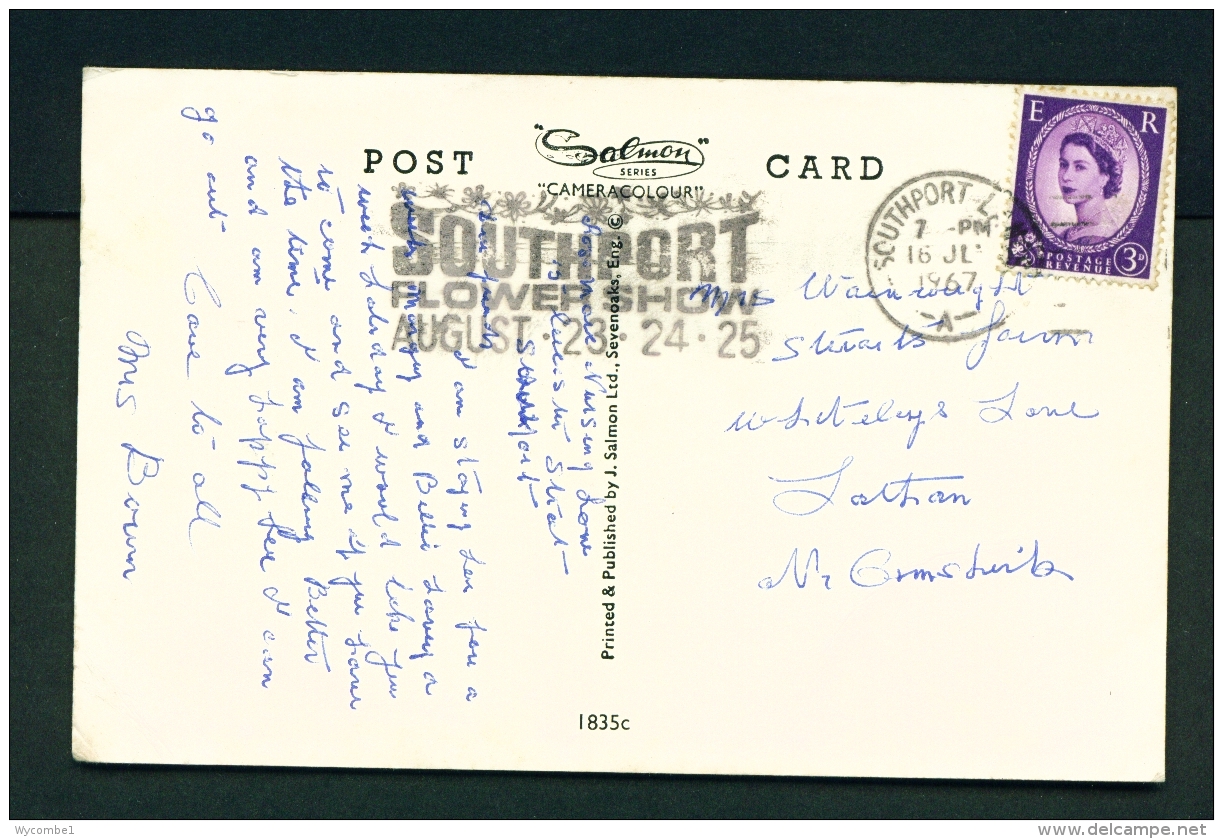 POST
"Salmon"
SERIES
"CAMERACOLOUR"
CARD
E R
POSTAGE
REVENUE
3D
SOUTHPORT
7 -PM
16 JL
1967
-A-
SOUTHPORT
FLOWER SHOW
AUGUST · 23 · 24 · 25
Nursing Home
15
Southport
I am staying her for a
with Mary and having a
week holiday I would like you
to come and see me if you have
the time. I am feeling Better
and am very happy her I can
go out Love to all
Mrs
Printed & Published by J. Salmon Ltd., Sevenoaks, Eng. ©
Mrs Wainwright
Farm
Whiteleys Lane
Lathan
Nr Ormskirk
1835c
Wycombe1
www.delcampe.net